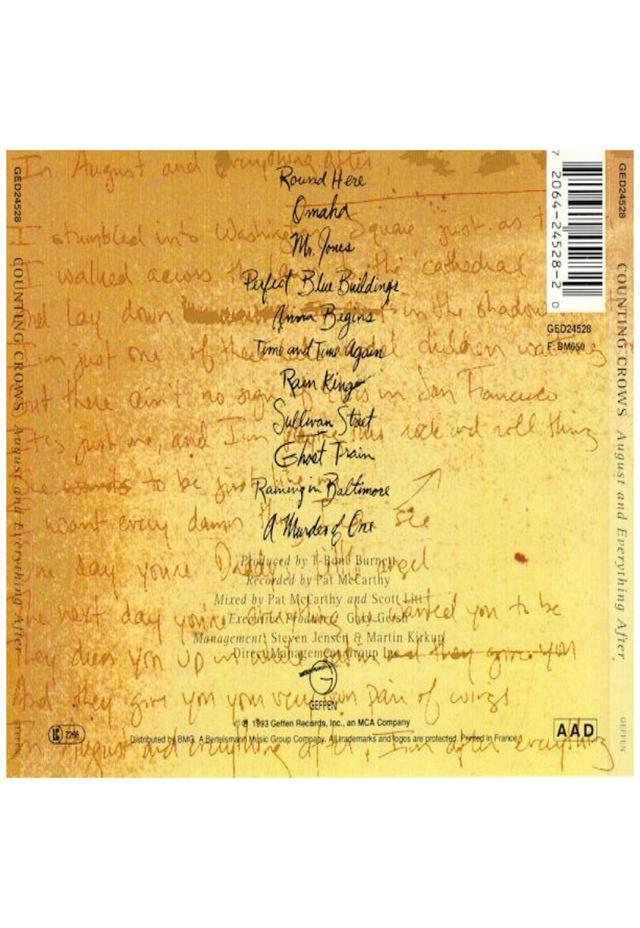 GED24528 COUNTING CROWS August and Everything After GEFFEN
In August and Everything after
I stumbled into Washington Square just as
I walked across the the cathedral
lay down in the shadow
I'm just one of these children
there ain't no sign of in San Francisco
just me, and I'm this rock and roll thing
to be just
want every damn see
day you're Daddy's angel
next day you're wanted you to be
They dress you up in and they give you
And they give you your very own pair of wings
In August and everything after, I'm after everything
Round Here
Omaha
Mr. Jones
Perfect Blue Buildings
Anna Begins
Time and Time Again
Rain King
Sullivan Street
Ghost Train
Raining in Baltimore
A Murder of One
Produced by T-Bone Burnett
Recorded by Pat McCarthy
Mixed by Pat McCarthy and Scott Litt
Executive Producer Gary Gersh
Management Steven Jensen & Martin Kirkup
Direct Management Group Inc.
GEFFEN
℗ © 1993 Geffen Records, Inc., an MCA Company
Distributed by BMG. A Bertelsmann Music Group Company. All trademarks and logos are protected. Printed in France.
LC 7266
AAD
7 2064-24528-2 0
GED24528
F: BM650
GED24528 COUNTING CROWS August and Everything After GEFFEN